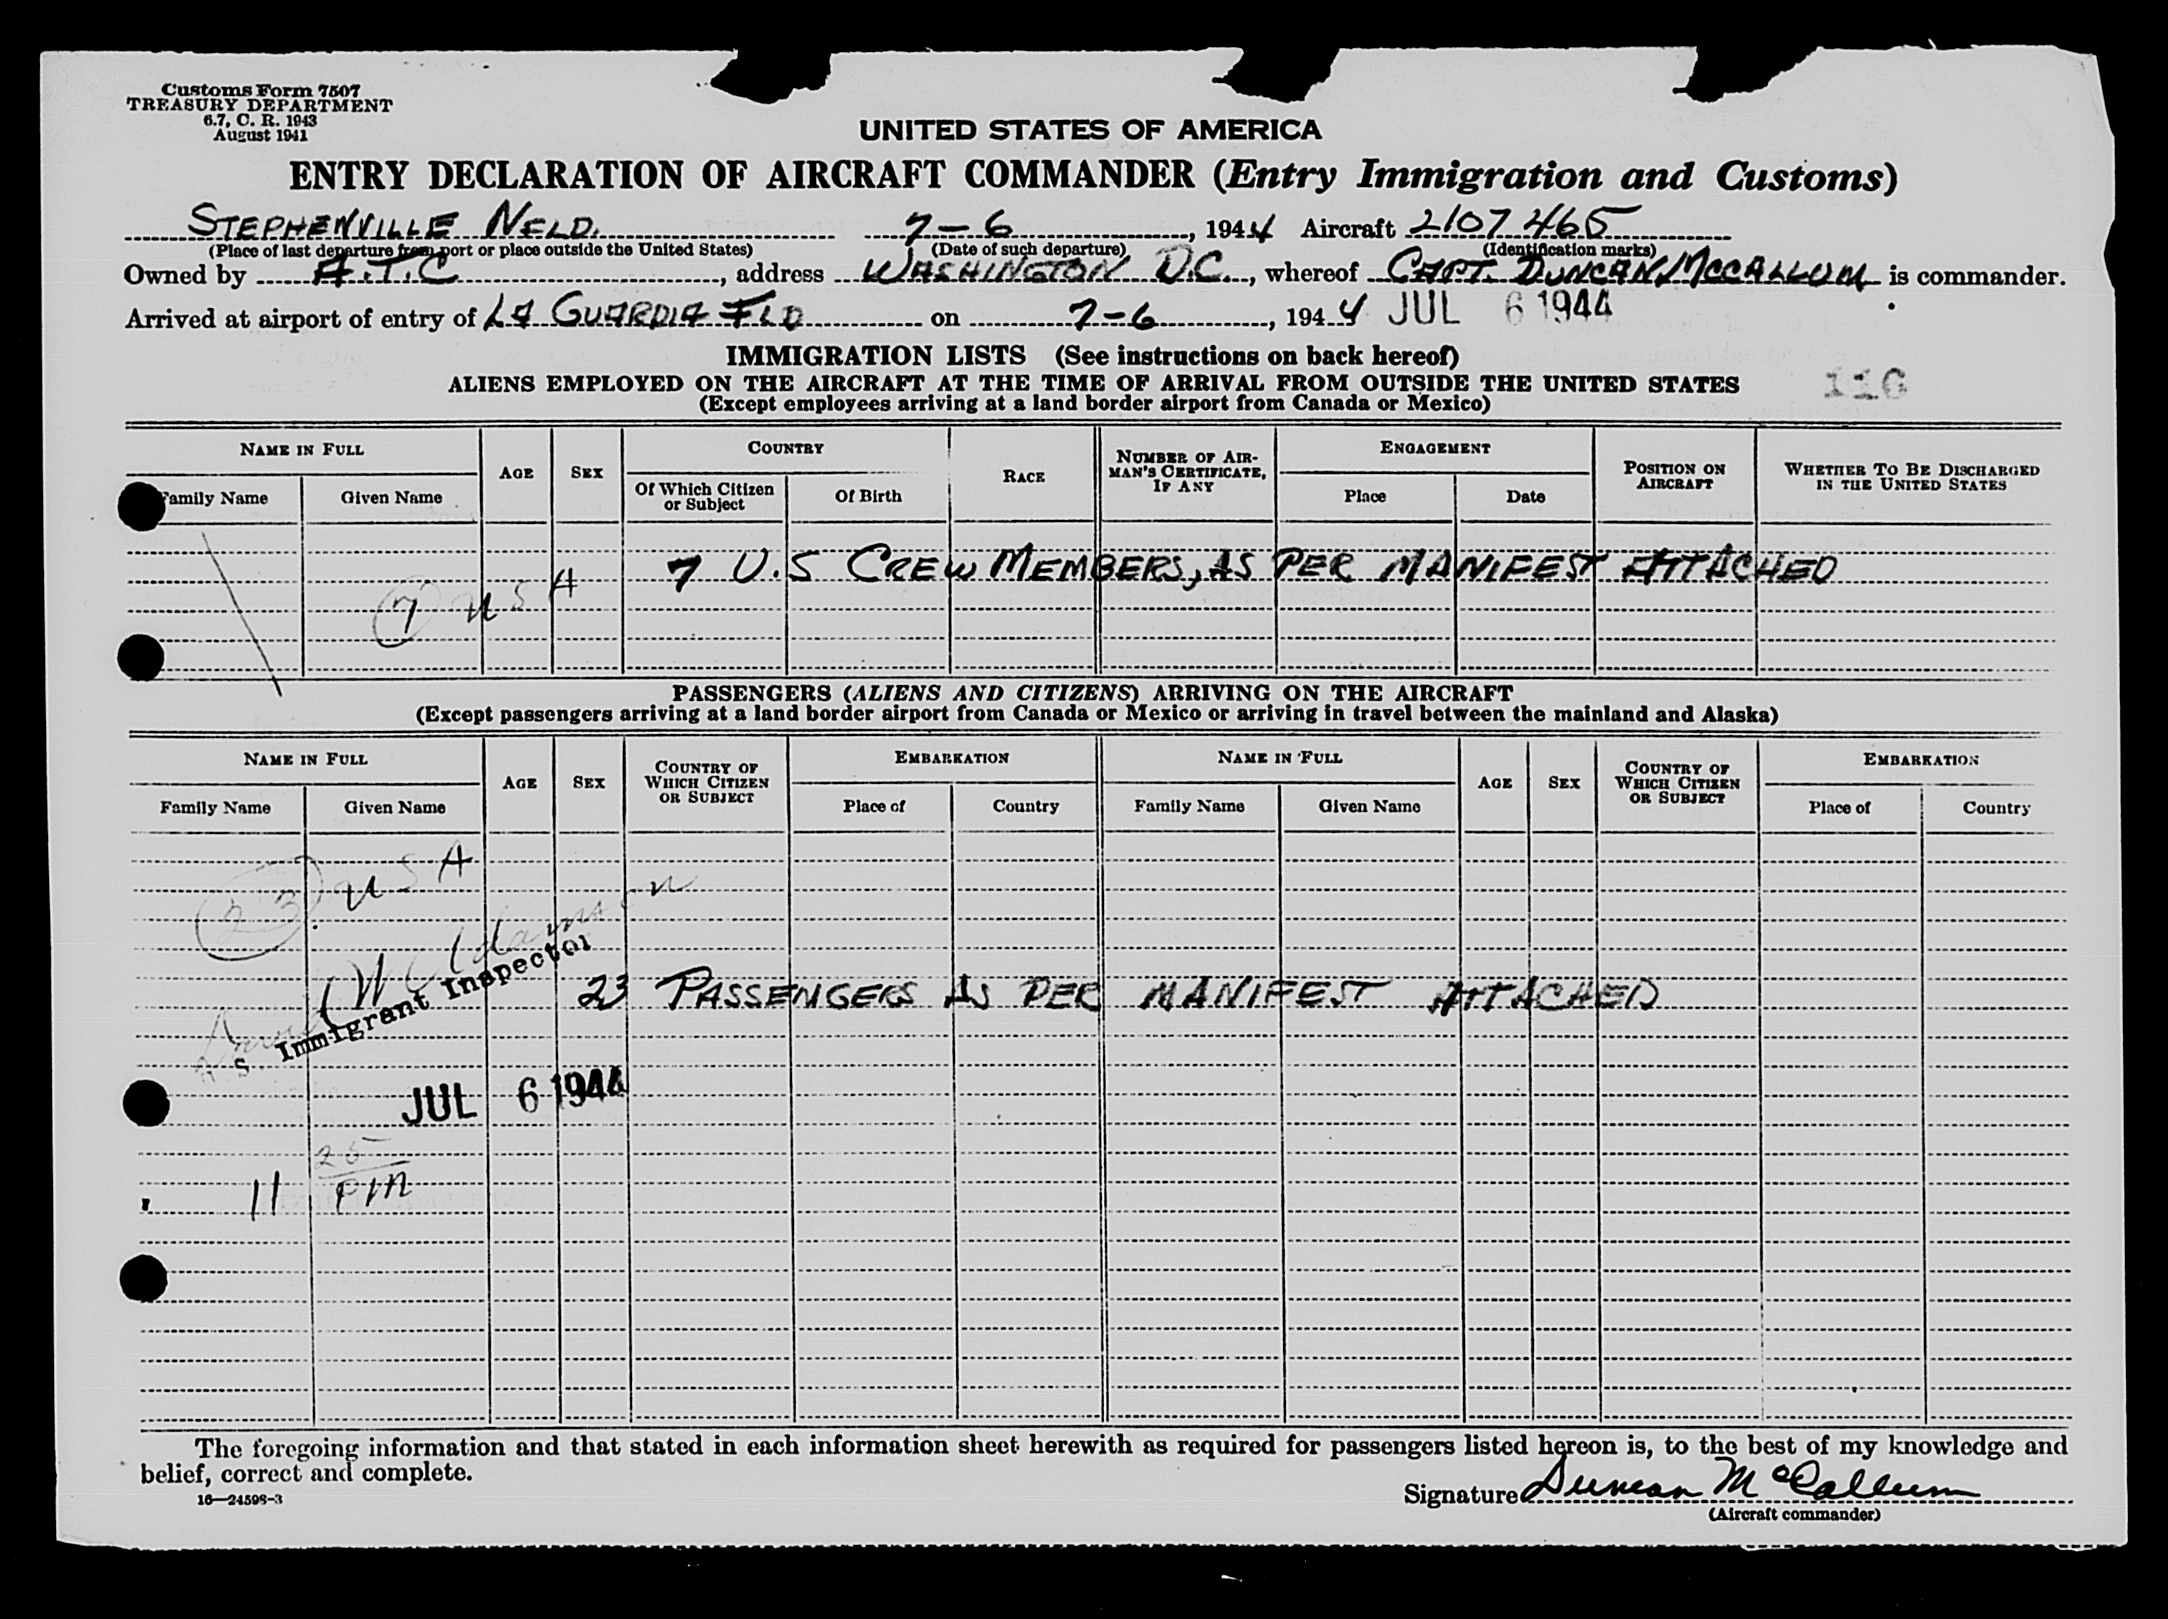 Customs Form 7507
TREASURY DEPARTMENT
6.7, C. R. 1943
August 1941
UNITED STATES OF AMERICA
ENTRY DECLARATION OF AIRCRAFT COMMANDER (Entry Immigration and Customs)
STEPHENVILLE NFLD. 7-6, 1944 Aircraft 2107465
(Place of last departure from port or place outside the United States) (Date of such departure) (Identification marks)
Owned by A.T.C, address WASHINGTON D.C., whereof CAPT. DUNCAN MCCALLUM is commander.
Arrived at airport of entry of LA GUARDIA FLD on 7-6, 1944 JUL 6 1944
IMMIGRATION LISTS (See instructions on back hereof)
ALIENS EMPLOYED ON THE AIRCRAFT AT THE TIME OF ARRIVAL FROM OUTSIDE THE UNITED STATES 116
(Except employees arriving at a land border airport from Canada or Mexico)
NAME IN FULL AGE SEX COUNTRY RACE NUMBER OF AIRMAN'S CERTIFICATE, IF ANY ENGAGEMENT POSITION ON AIRCRAFT WHETHER TO BE DISCHARGED IN THE UNITED STATES
Family Name Given Name Of Which Citizen or Subject Of Birth Place Date
7 U.S CREW MEMBERS, AS PER MANIFEST ATTACHED
7 USA
PASSENGERS (ALIENS AND CITIZENS) ARRIVING ON THE AIRCRAFT
(Except passengers arriving at a land border airport from Canada or Mexico or arriving in travel between the mainland and Alaska)
NAME IN FULL AGE SEX COUNTRY OF WHICH CITIZEN OR SUBJECT EMBARKATION NAME IN FULL AGE SEX COUNTRY OF WHICH CITIZEN OR SUBJECT EMBARKATION
Family Name Given Name Place of Country Family Name Given Name Place of Country
23 USA
S. Immigrant Inspector
23 PASSENGERS AS PER MANIFEST ATTACHED
JUL 6 1944
11 25 PM
The foregoing information and that stated in each information sheet herewith as required for passengers listed hereon is, to the best of my knowledge and
belief, correct and complete.
16—24598-3
Signature Duncan McCallum
(Aircraft commander)